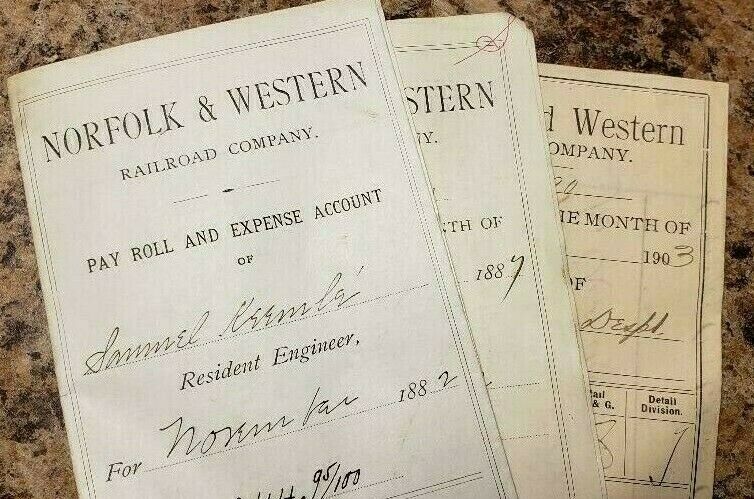 NORFOLK & WESTERN
RAILROAD COMPANY.
PAY ROLL AND EXPENSE ACCOUNT
OF
Samuel Keemlé
Resident Engineer,
For November 1882
95/100
STERN
NY.
TH OF
1887
d Western
OMPANY.
HE MONTH OF
1903
OF
Dept
& G.
Detail
Division.